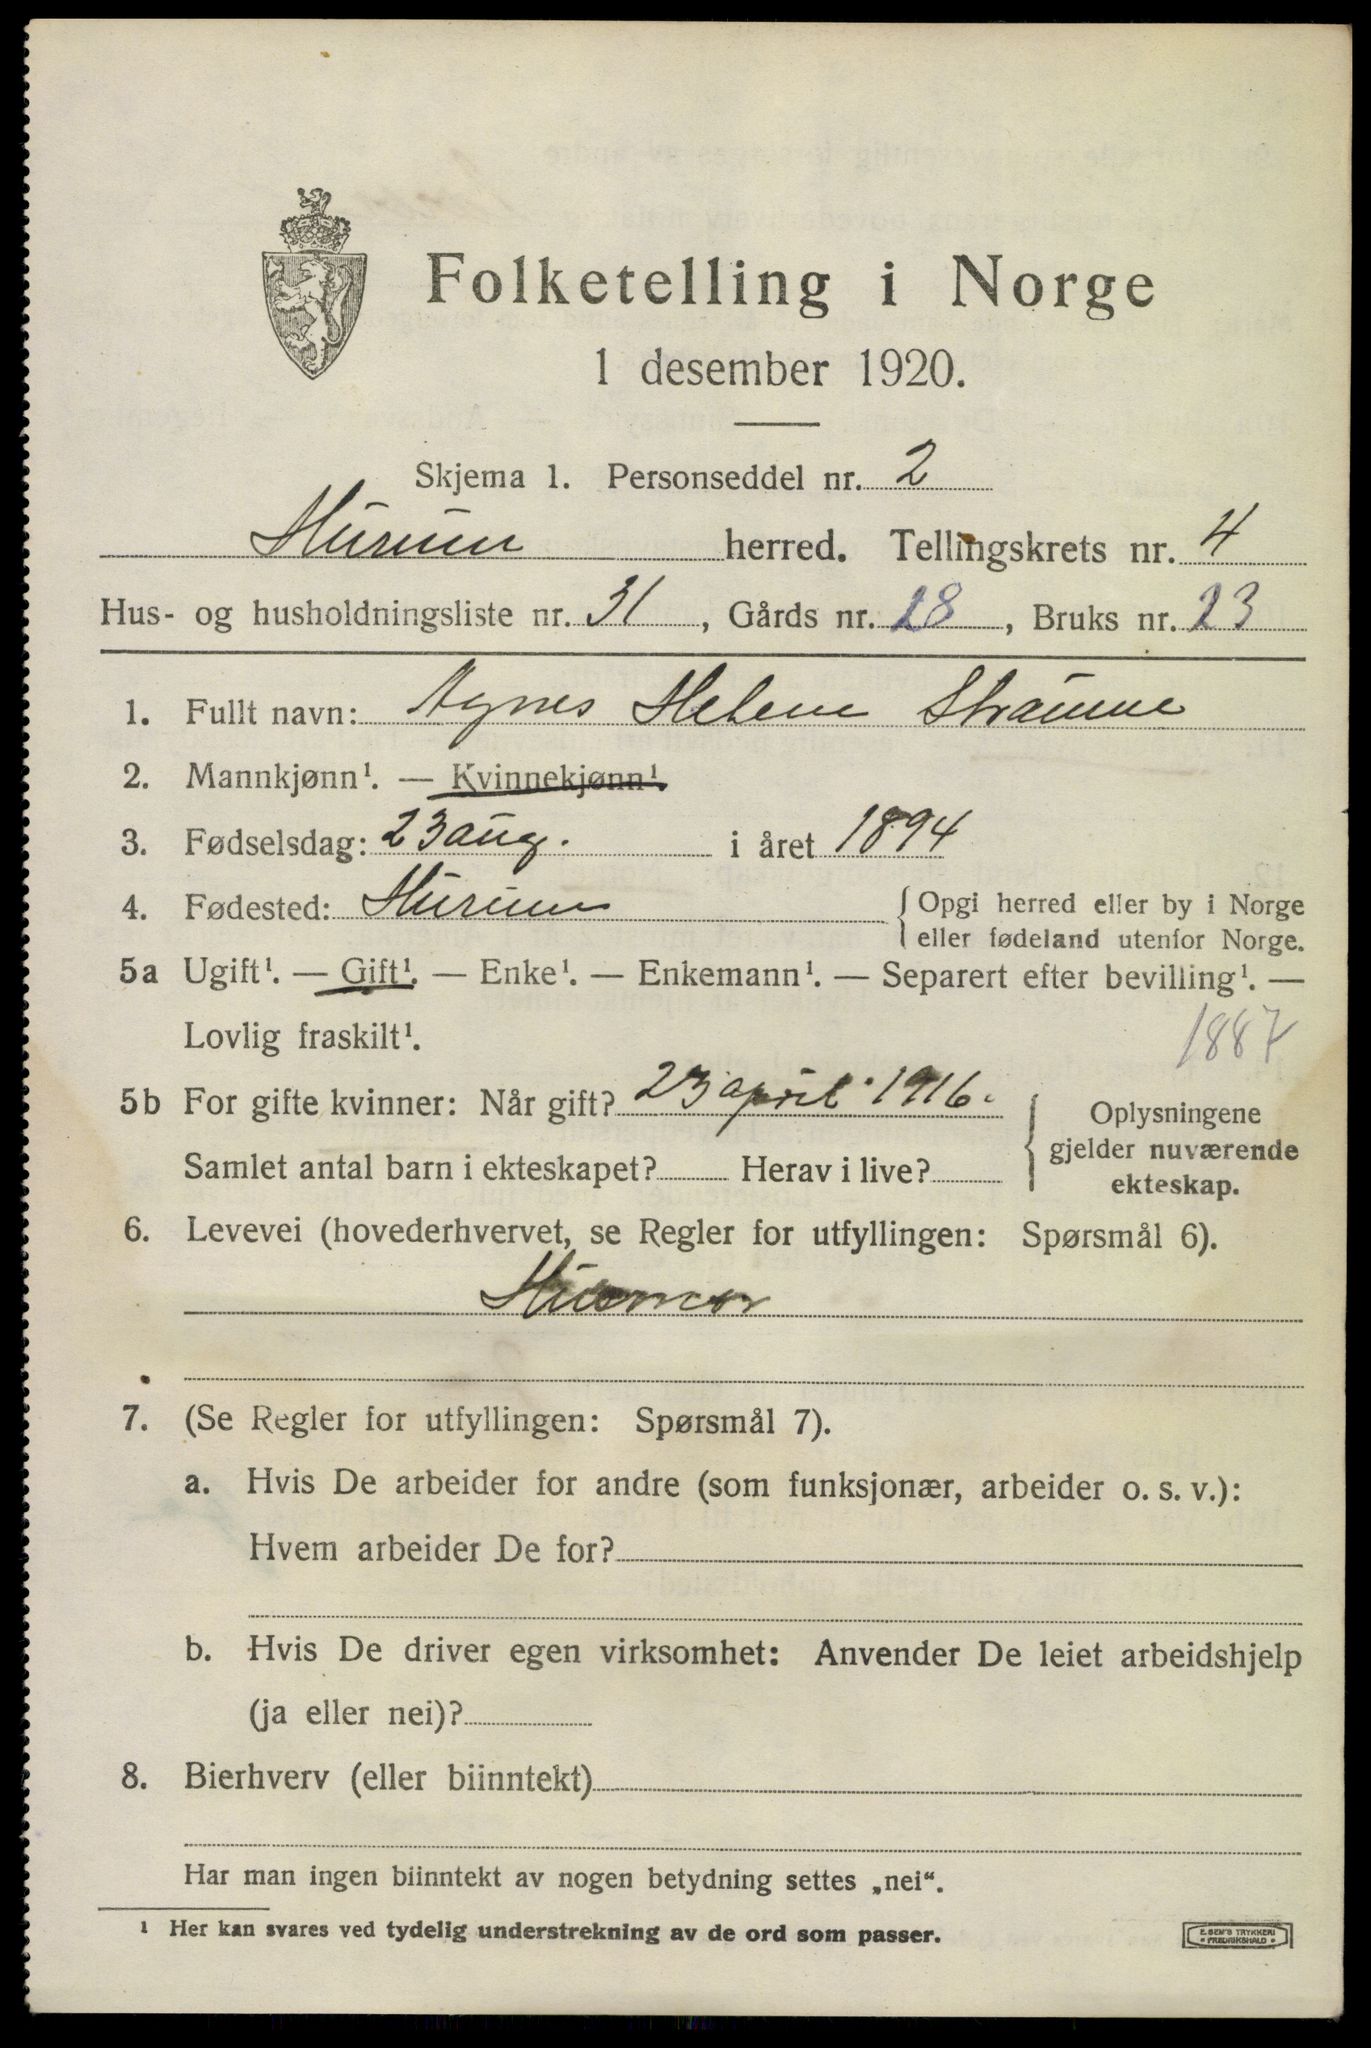 Folketelling i Norge
1 desember 1920.
Skjema 1. Personseddel nr. 2
Hurum herred. Tellingskrets nr. 4
Hus- og husholdningsliste nr. 31, Gårds nr. 28, Bruks nr. 23
1. Fullt navn: Agnes Helene Strømme
2. Mannkjønn¹. — Kvinnekjønn¹.
3. Fødselsdag: 23 aug. i året 1894
4. Fødested: Hurum { Opgi herred eller by i Norge
eller fødeland utenfor Norge.
5a Ugift¹. — Gift¹. — Enke¹. — Enkemann¹. — Separert efter bevilling¹. —
Lovlig fraskilt¹. 1887
5b For gifte kvinner: Når gift? 23 april 1916.
Samlet antal barn i ekteskapet? Herav i live?
{ Oplysningene
gjelder nuværende
ekteskap.
6. Levevei (hovederhvervet, se Regler for utfyllingen: Spørsmål 6).
Husmor
7. (Se Regler for utfyllingen: Spørsmål 7).
a. Hvis De arbeider for andre (som funksjonær, arbeider o. s. v.):
Hvem arbeider De for?
b. Hvis De driver egen virksomhet: Anvender De leiet arbeidshjelp
(ja eller nei)?
8. Bierhverv (eller biinntekt)
Har man ingen biinntekt av nogen betydning settes „nei“.
¹ Her kan svares ved tydelig understrekning av de ord som passer.
E. SEM'S TRYKKERI
• FREDRIKSHALD •